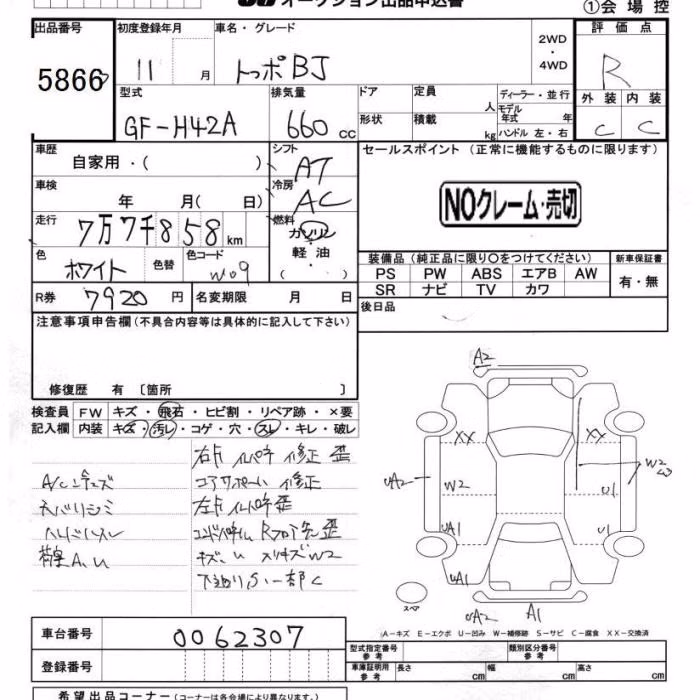 オークション出品申込書
①会場控
出品番号 初度登録年月 車名・グレード 評価点
5866 11 月 トッポBJ 2WD・4WD R
型式 排気量 ドア 定員 人 ディーラー・並行 外装 内装
GF-H42A 660 cc 形状 積載 kg モデル年式 年 ハンドル 左・右 C C
車歴 シフト セールスポイント (正常に機能するものに限ります)
自家用・( ) AT
車検 冷房
年 月( 日) AC NOクレーム・売切
走行 燃料
7万7千858km ガソリン・軽油・( )
色 色替 色コード 装備品 (純正品に限り○をつけてください) 新車保証書
ホワイト W09 PS PW ABS エアB AW 有・無
SR ナビ TV カワ
R券 7920 円 名変期限 月 日 後日品
注意事項申告欄 (不具合内容等は具体的に記入して下さい)
修復歴 有 〔箇所 〕
検査員 FW キズ・飛石・ヒビ割・リペア跡・×要
記入欄 内装 キズ・汚レ・コゲ・穴・スレ・キレ・破レ
コアサポート 修正
A2
XX XX
UA2 W2 W2
U1
UA1 U1
UA1 UA1
スペア
UA2 A1
A-キズ E-エクボ U-凹み W-補修跡 S-サビ C-腐食 XX-交換済
車台番号 0062307
登録番号
型式指定番号 参考 類別区分番号 参考
車庫証明用 参考 長さ cm 幅 cm 高さ cm
希望出品コーナー (コーナーは各会場により異なります)